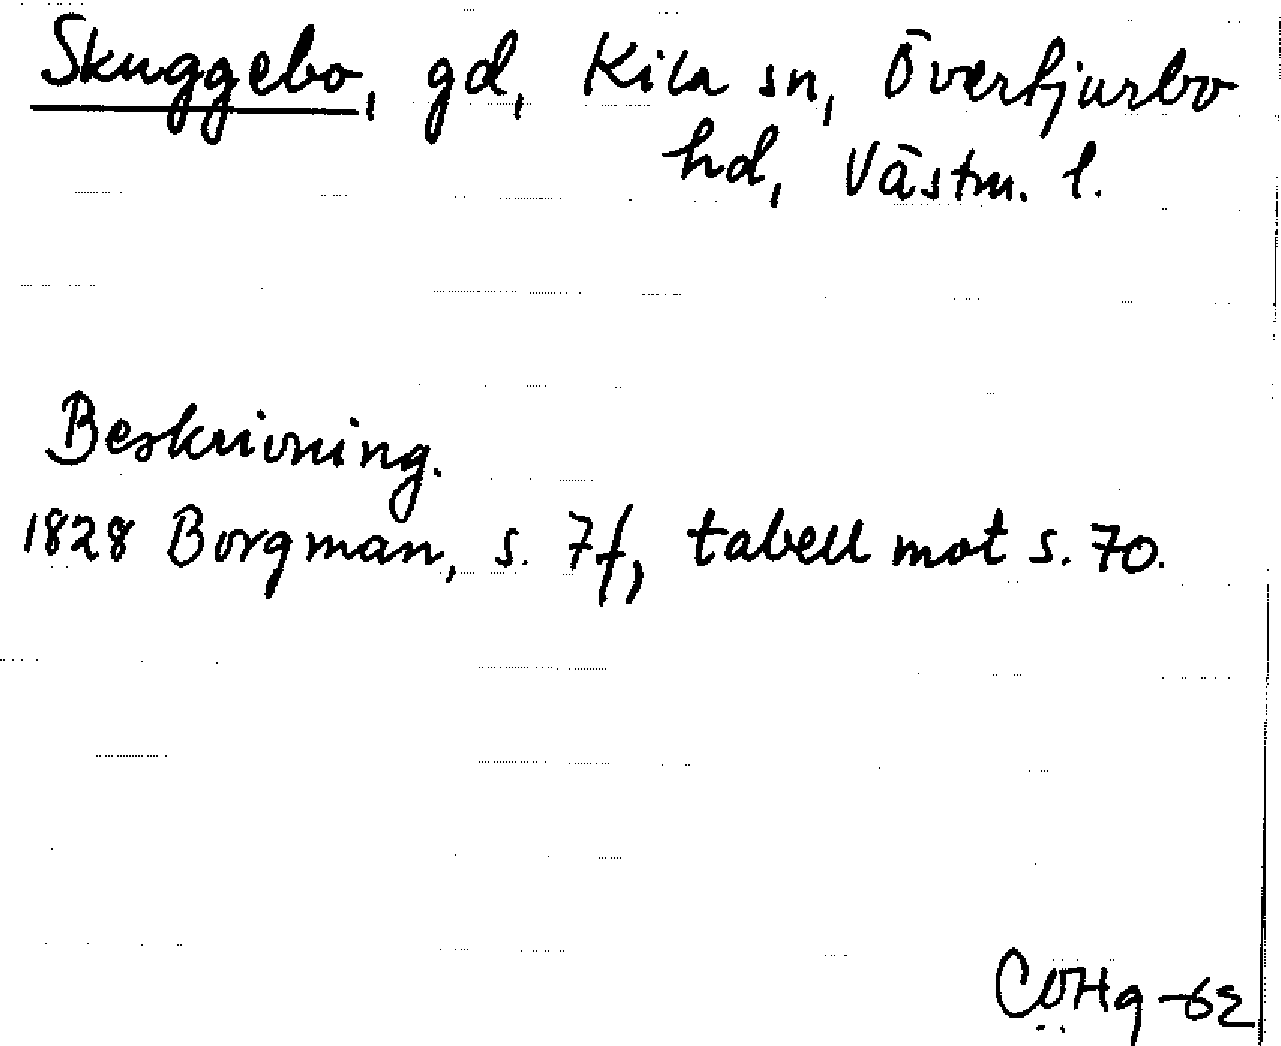 Skuggebo, gd, Kila sn, Överfjurbo
hd, Västm. l.
Beskrivning.
1828 Borgman, s. 7f, tabell mot s. 70.
COHg -62